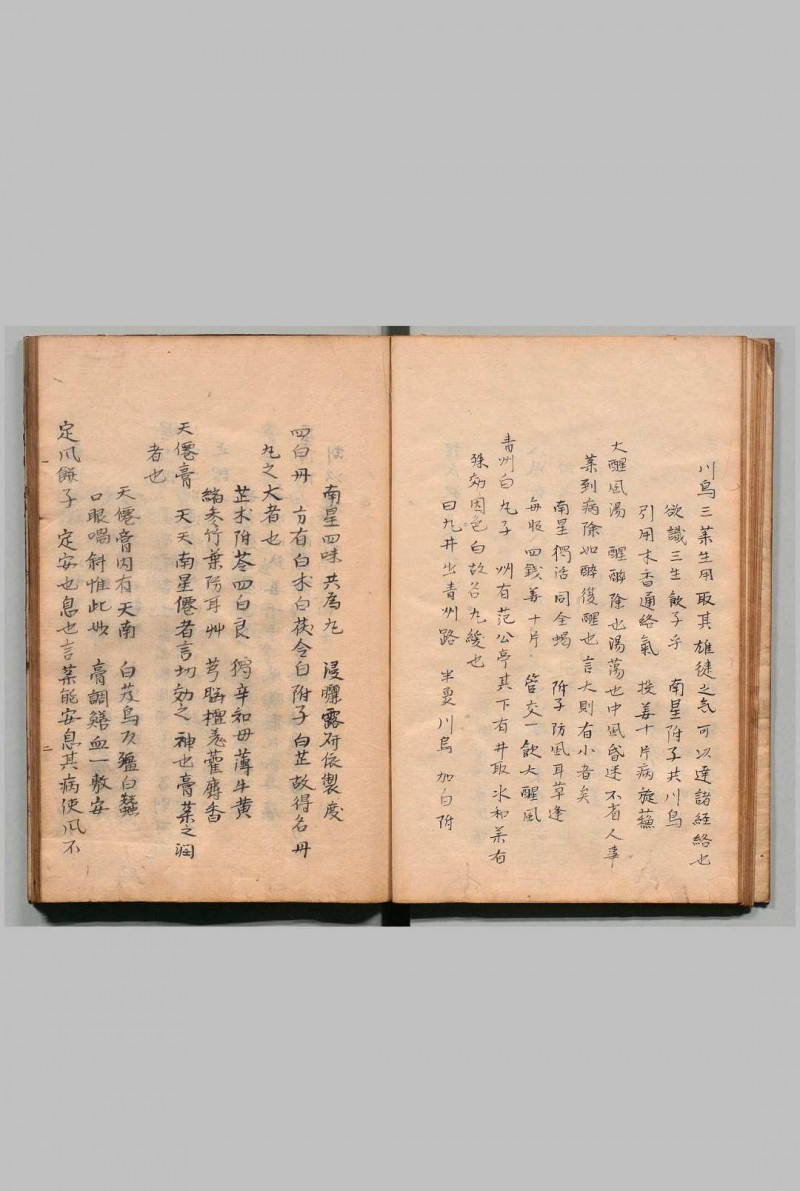 川烏三藥生用取其雄徒之気可以達諸経絡也
欲識三生飲子乎　南星附子共川烏
引用木香通絡氣　投姜十片病旋蘓
大醒風湯　醒醉除也湯蕩也中風昏迷不省人事
藥到病除如醉復醒也言大則有小者矣
南星獨活同全蝎　附子防風耳草逢
每服四錢姜十片　管交一飲大醒風
青州白丸子　州有范公亭其下有井取氷和藥有
殊効因色白故名丸緩也
曰丸井出青州路　半夏川烏加白附
南星四味共為丸　浸曬露研依製度
四白丹　方有白术白茯令白附子白芷故得名丹
丸之大者也
芷术附苓四白良　獨辛和毋薄牛黄
縮参竹葉防耳艸　芎腦檀羗藿麝香
天僊膏　天天南星僊者言切効之神也膏藥之潤
者也
天僊膏内有天南　白芨烏頭殭白蠶
口眼喎斜惟此妙　膏調鱔血一敷安
定風餅子　定安也息也言藥能安息其病使風不
一
二